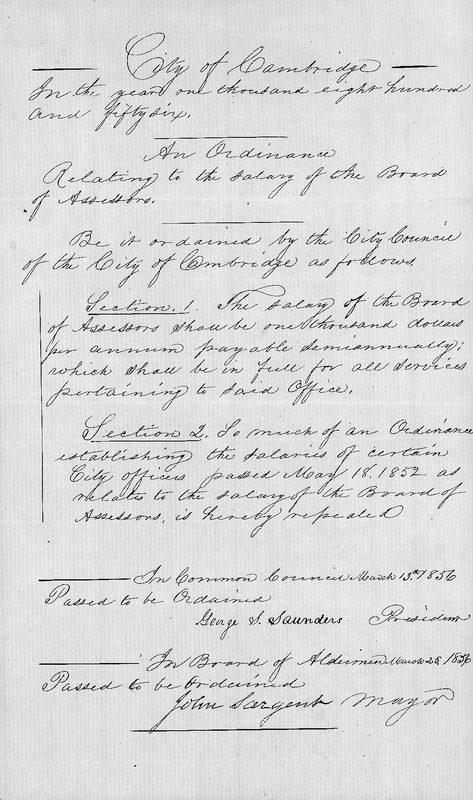 City of Cambridge
In the year one thousand eight hundred
and fiftysix.
An Ordinance
Relating to the salary of the Board
of Assessors.
Be it ordained by the City Council
of the City of Cambridge as follows
Section. 1. The salary of the Board
of Assessors shall be one thousand dollars
per annum payable semiannually;
which shall be in full for all services
pertaining to said Office.
Section 2. So much of an Ordinance
establishing the salaries of certain
City officers passed May 18. 1852 as
relates to the salary of the Board of
Assessors, is hereby repealed
In Common Council March 13th 1856
Passed to be Ordained
George S. Saunders President
In Board of Aldermen March 25 1856
Passed to be Ordained
John Sargent Mayor